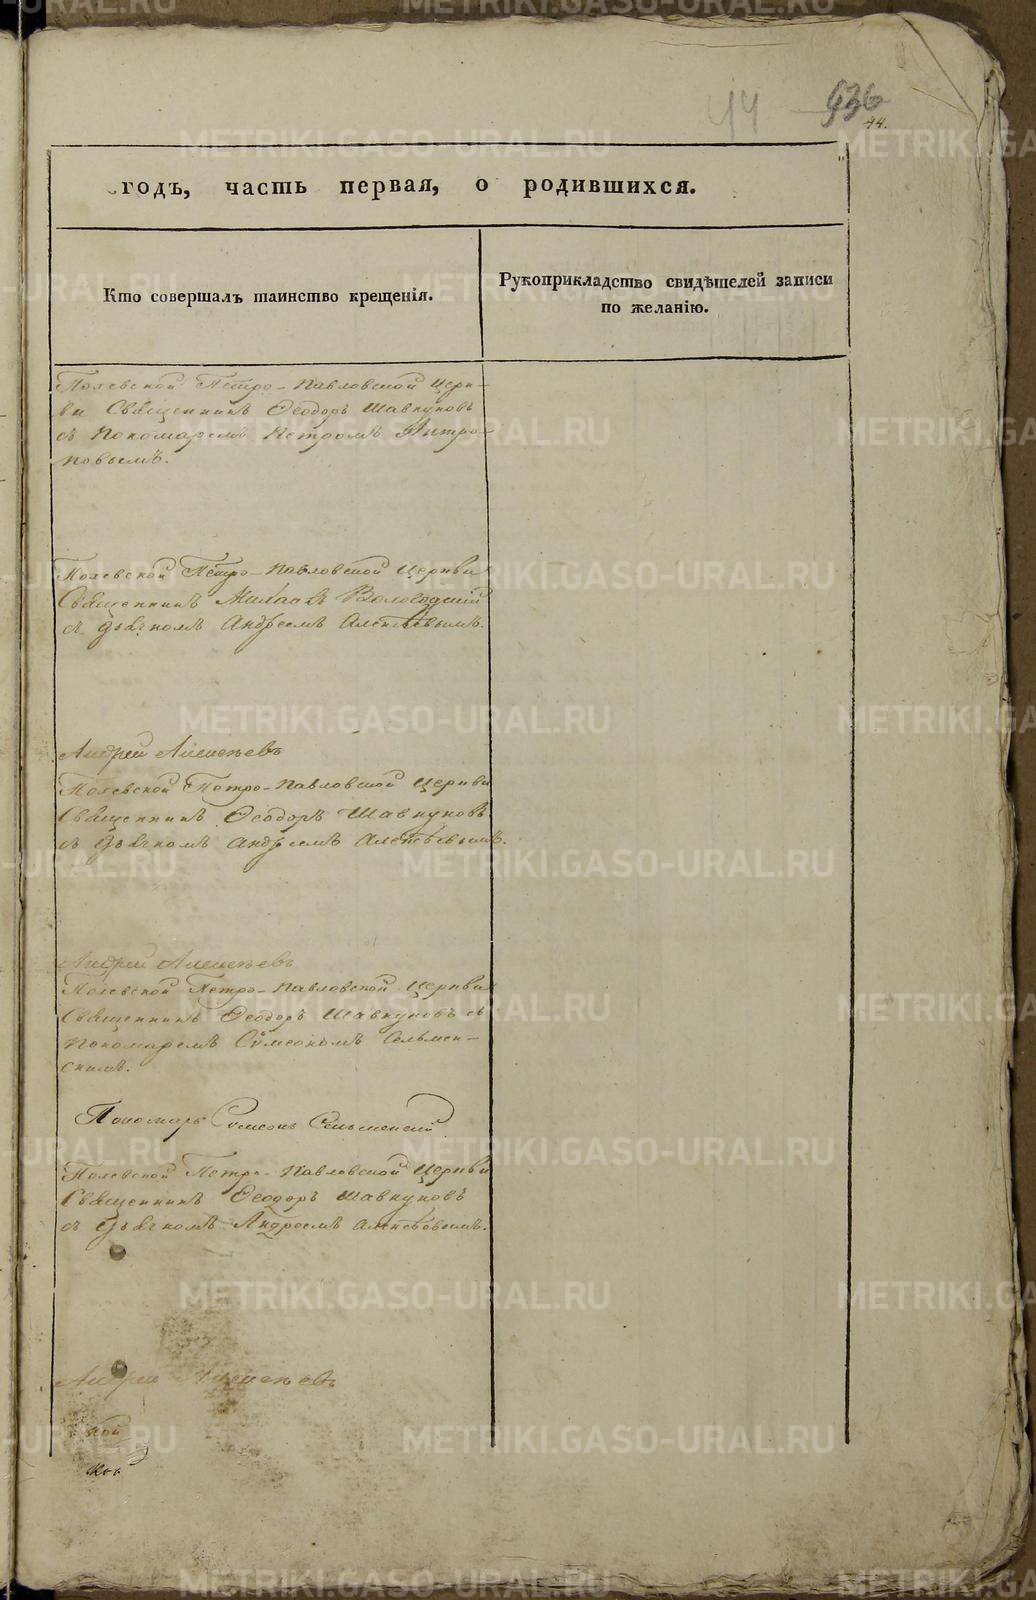 44 936
44.
годъ, часть первая, о родившихся.
Кто совершалъ таинство крещенія.
Рукоприкладство свидѣтелей записи
по желанію.
Полевской Петро-Павловской Церк-
ви Священникъ Ѳеодоръ Шавкуновъ
съ Пономаремъ Петромъ Антро-
повымъ.
Полевской Петро-Павловской Церкви
Священникъ Вологодскій
съ дьячкомъ Андреемъ Алексѣевымъ.
Андрей Алексѣевъ
Полевской Петро-Павловской Церкви
Священникъ Ѳеодоръ Шавкуновъ
съ Дьячкомъ Андреемъ Алексѣевымъ.
Андрей Алексѣевъ
Полевской Петро-Павловской Церкви
Священникъ Ѳеодоръ Шавкуновъ съ
Пономаремъ Сѵмеономъ Сельмен-
скимъ.
Пономарь Сѵмеонъ Сельменскій
Полевской Петро-Павловской Церкви
Священникъ Ѳеодоръ Шавкуновъ
съ Дьячкомъ Андреемъ Алексѣевымъ.
Андрей Алексѣевъ
кой
METRIKI.GASO-URAL.RU